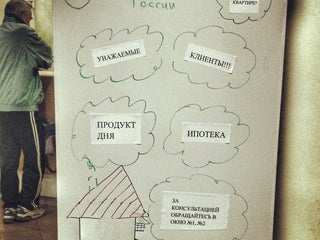 России
КВАРТИРЕ?
УВАЖАЕМЫЕ
КЛИЕНТЫ!!!
ПРОДУКТ
ДНЯ
ИПОТЕКА
ЗА
КОНСУЛЬТАЦИЕЙ
ОБРАЩАЙТЕСЬ В
ОКНО №1, №2